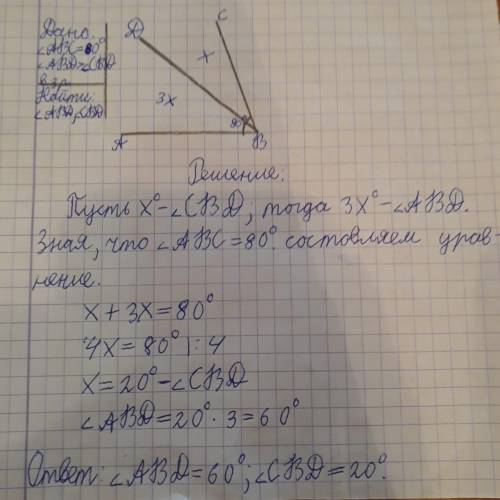 Дано.
∠ABC=80°
∠ABD>∠CBD
в 3р
Найти:
∠ABD, ∠CBD
D
C
x
3x
80
A
B
Решение:
Пусть x°-∠CBD, тогда 3x°-∠ABD.
Зная, что ∠ABC=80°. составляем урав-
нение.
x+3x=80°
4x=80° |:4
x=20°-∠CBD
∠ABD=20°·3=60°
Ответ: ∠ABD=60°; ∠CBD=20°.